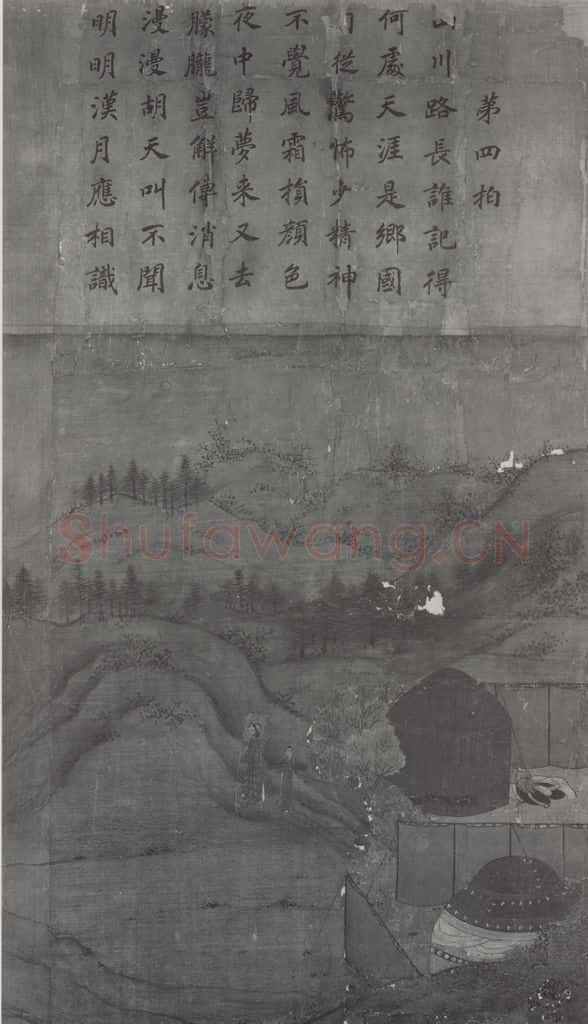 第四拍
山川路長誰記得
何處天涯是鄉國
從驚怖少精神
不覺風霜損顏色
夜中歸夢来又去
朦朧豈解傳消息
漫漫胡天叫不聞
明明漢月應相識
Shufawang.CN